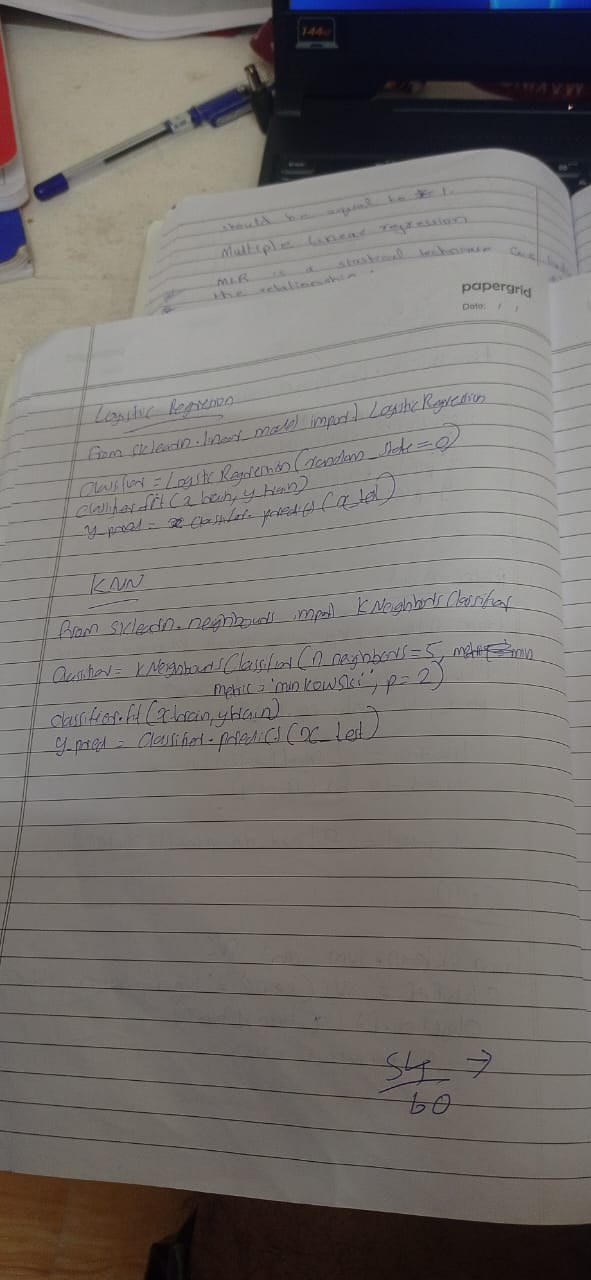 144
should be equal to 1.
Multiple linear regression
MLR is a stastical technique
the relationship.
papergrid
Date: / /
Logistic Regression
from sklearn.linear_model import LogisticRegression
classifier = LogisticRegression (random_state = 0)
classifier.fit (x train, y train)
y_pred = classifier.predict (x_test)
KNN
from sklearn.neighbours import KNeighborsClassifier
Classifier = KNeighborsClassifier (n_neighbors = 5,
metric = 'minkowski', p = 2)
classifier.fit (x train, y train)
y_pred = Classifier.predict (x_test)
60